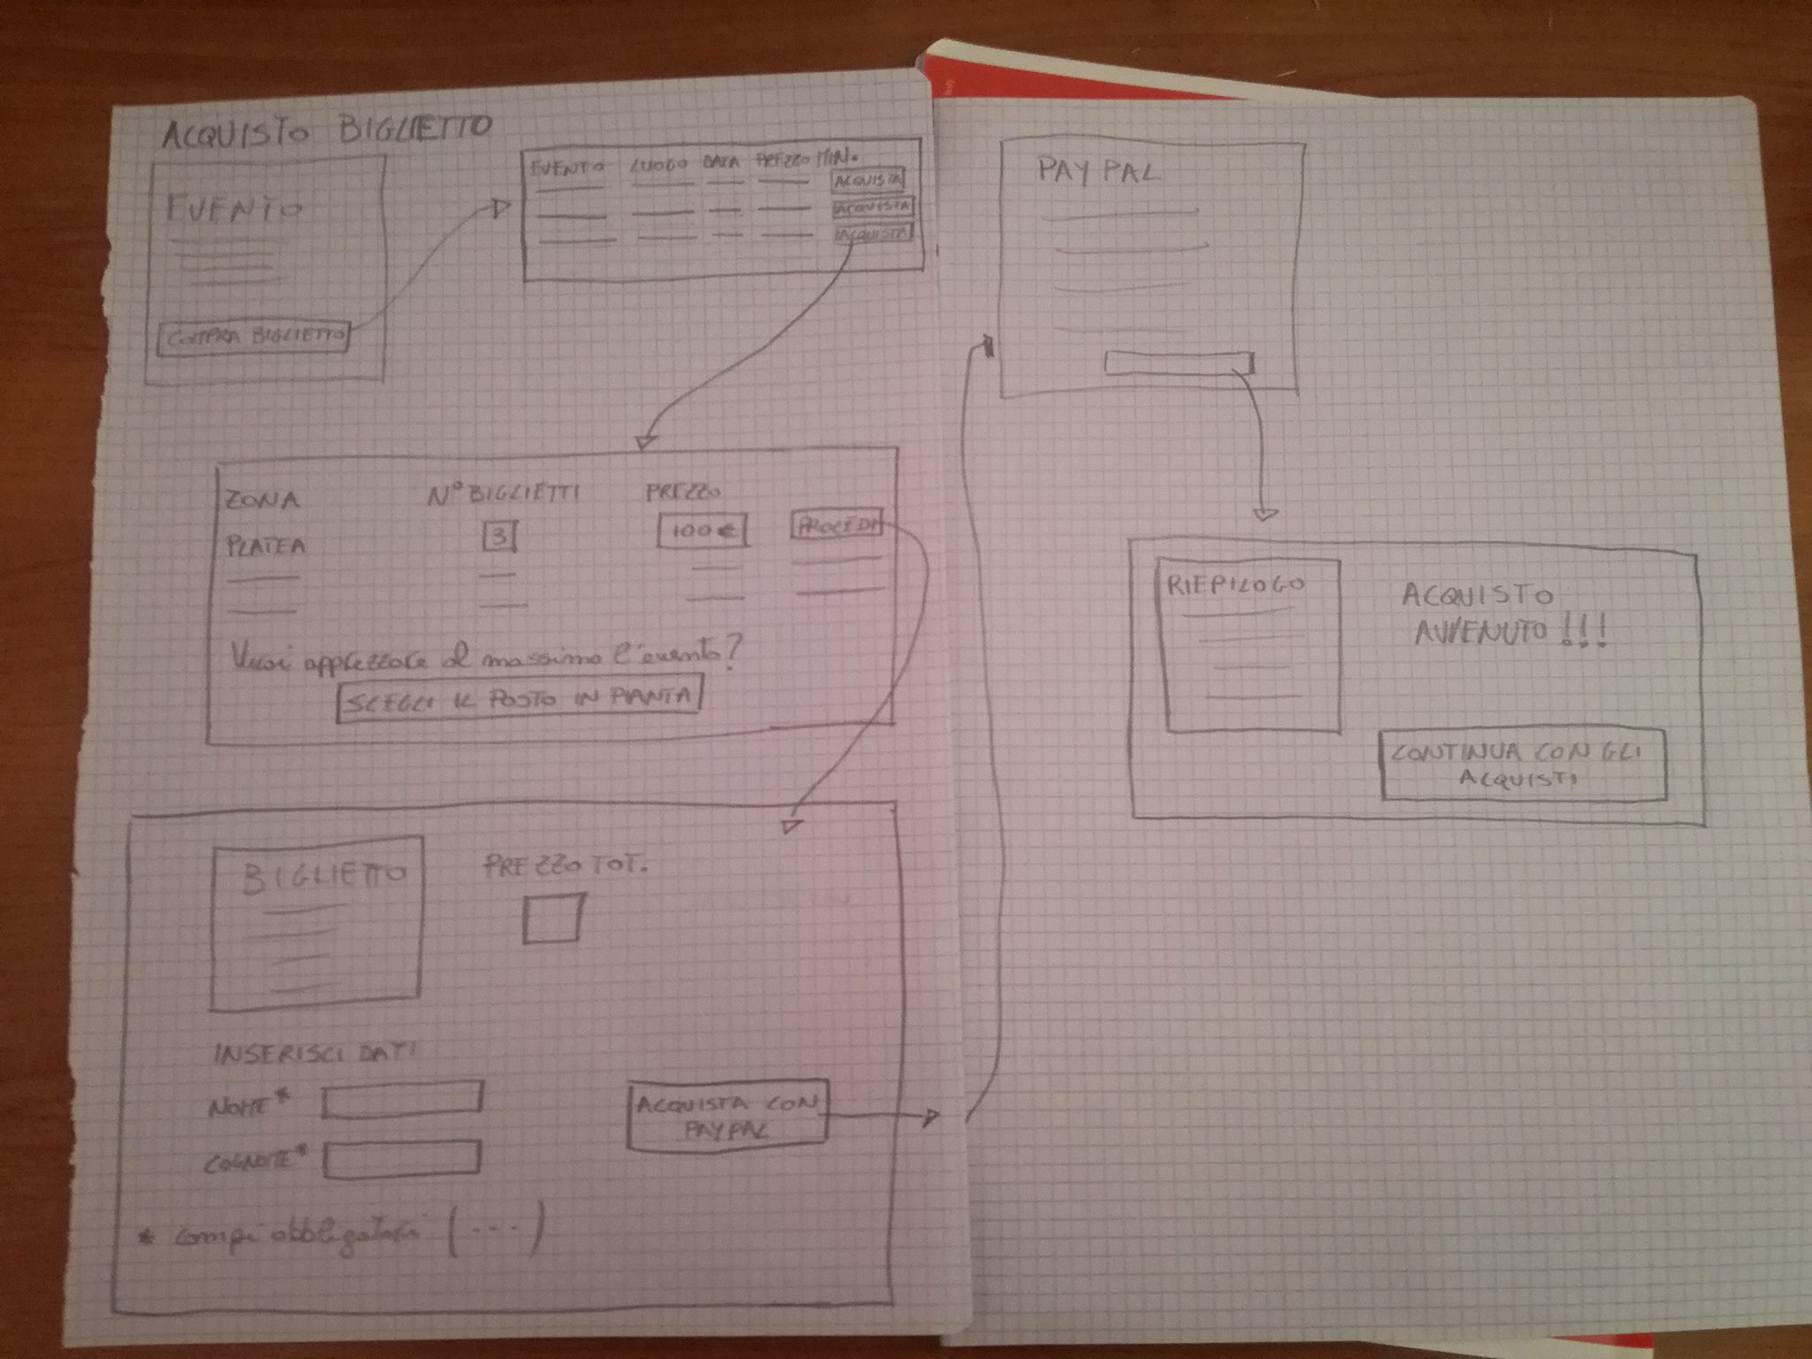 ACQUISTO BIGLIETTO
EVENTO
COMPRA BIGLIETTO
EVENTO LUOGO DATA PREZZO MIN.
ACQUISTA
ACQUISTA
ACQUISTA
ZONA N° BIGLIETTI PREZZO
PLATEA 3 100€ PROCEDI
Vuoi apprezzare al massimo l'evento?
SCEGLI IL POSTO IN PIANTA
BIGLIETTO PREZZO TOT.
INSERISCI DATI
NOME*
COGNOME*
ACQUISTA CON
PAYPAL
* campi obbligatori (---)
PAYPAL
RIEPILOGO
ACQUISTO
AVVENUTO!!!
CONTINUA CON GLI
ACQUISTI